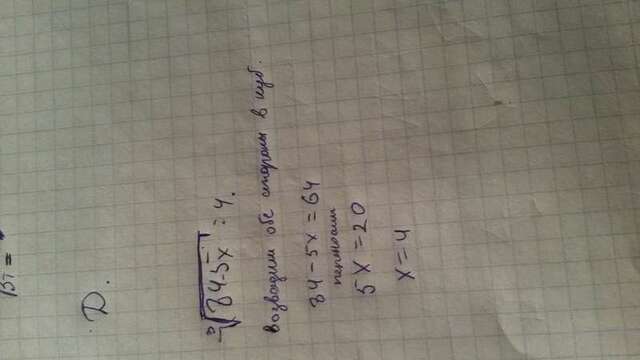 Д.
∛(84-5x) = 4.
Возводим обе стороны в куб.
84-5x=64
переносим
5x=20
x=4